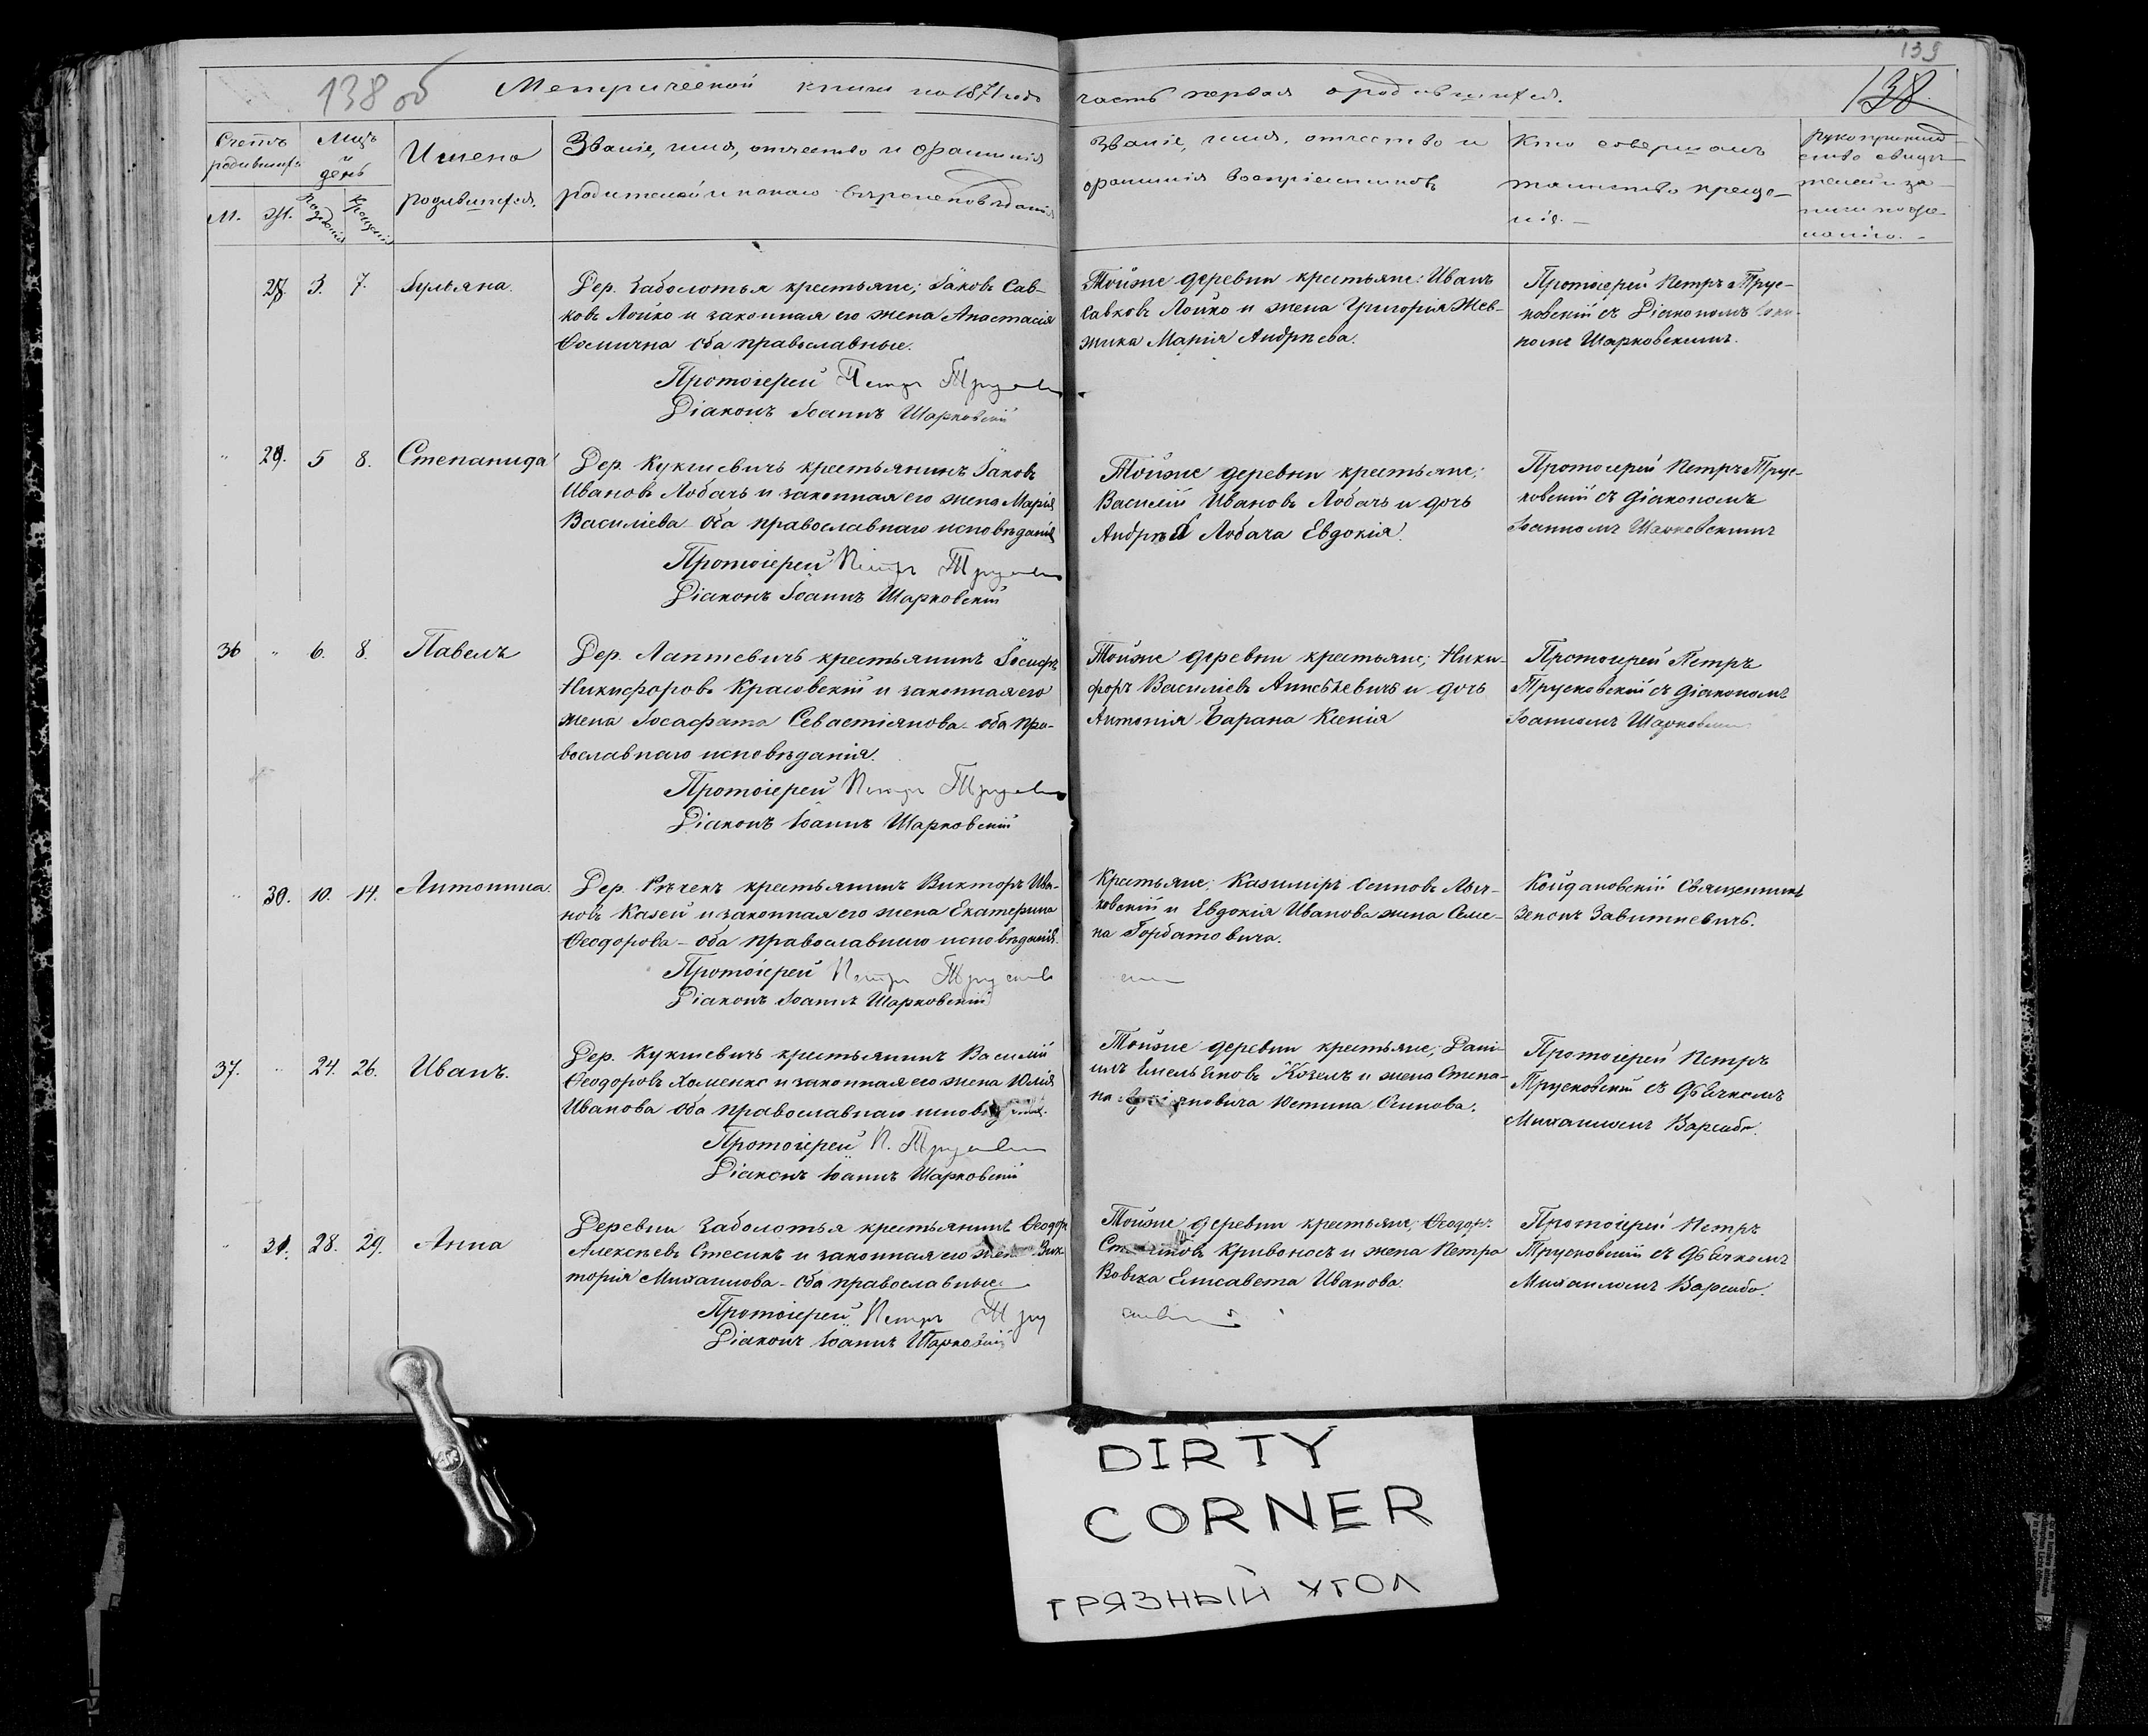 138 об
Метрической книги на 1871 годъ
часть первая о родившихся.
139
138.
Счетъ родившихъ
Мцъ и день
Имена родившихся.
Званіе, имя, отчество и фамилія
родителей и какого вѣроисповѣданія
Званіе, имя, отчество и
фамилія воспріемниковъ
Кто совершалъ
таинство креще-
нія.
Рукоприклад-
ство свидѣ-
телей о за-
писи по же-
ланію.
М. Ж. Рожденія Крещенія
28. 3. 7. Іульяна.
Дер. Заболотья крестьяне; Іаковъ Сав-
ковъ Лойко и законная его жена Анастасія
Фомична оба православные.
Протоіерей Петръ
Діаконъ Іоаннъ Шарковскій
Тойже деревни крестьяне: Иванъ
Савковъ Лойко и жена Григорія Жев-
жика Марія Андрѣева.
Протоіерей Петръ Трус-
ковскій съ Діакономъ Іоан-
номъ Шарковскимъ.
" 29. 5 8. Степанида
Дер. Кукшевичъ крестьянинъ Іаковъ
Ивановъ Лобачъ и законная его жена Марія
Василіева оба православнаго исповѣданія
Протоіерей Петръ
Діаконъ Іоаннъ Шарковскій
Тойже деревни крестьяне;
Василій Ивановъ Лобачъ и дочь
Андрѣя Лобача Евдокія.
Протоіерей Петръ Трус-
ковскій съ діакономъ
Іоанномъ Шарковскимъ
36 " 6. 8. Павелъ
Дер. Лаптевичъ крестьянинъ Іосифъ
Никифоровъ Красовскій и законная его
жена Іосафата Севастіянова оба пра-
вославнаго исповѣданія.
Протоіерей Петръ
Діаконъ Іоаннъ Шарковскій
Тойже деревни крестьяне; Ники-
форъ Василіевъ и дочь
Антонія Барана Ксенія
Протоіерей Петръ
Трусковскій съ діакономъ
Іоанномъ Шарковским
" 30. 10. 14. Антонина.
Дер. Рѣчекъ крестьянинъ Викторъ Ива-
новъ Казей и законная его жена Екатерина
Феодорова - оба православнаго исповѣданія.
Протоіерей Петръ
Діаконъ Іоаннъ Шарковскій
Крестьяне; Казиміръ Осиповъ
и Евдокія Иванова жена Семе-
на Горбатовича.
Койдановскій Священникъ
Зенонъ Завитневичъ.
37. " 24. 26. Иванъ.
Дер. Кукшевичъ крестьянинъ Василій
Феодоровъ Хоменко и законная его жена Юлія
Иванова оба православнаго
Протоіерей П.
Діаконъ Іоаннъ Шарковскій
Тойже деревни крестьяне; Дани-
илъ Емельяновъ Козелъ и жена Степа-
на Юстина Осипова.
Протоіерей Петръ
Трусковскій съ дьячкомъ
Михаиломъ Варсабо.
" 31. 28. 29. Анна
Деревни Заболотья крестьянинъ Феодоръ
Алексѣевъ Стесикъ и законная его жена Вик-
торія Михаилова - оба православные
Протоіерей Петръ
Діаконъ Іоаннъ Шарковскій
Тойже деревни крестьяне; Феодоръ
Кривоносъ и жена Петра
Вовка Елисавета Иванова.
Протоіерей Петръ
Трусковскій съ дьячкомъ
Михаиломъ Варсабо.
DIRTY
CORNER
ГРЯЗНЫЙ УГОЛ